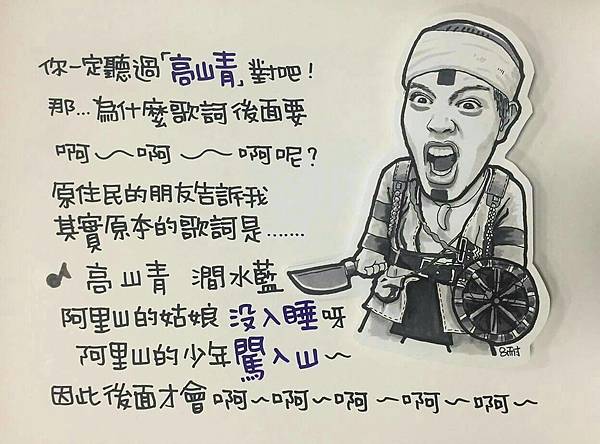 你一定聽過「高山青」對吧!
那...為什麼歌詞後面要
啊~啊~啊呢?
原住民的朋友告訴我
其實原本的歌詞是.......
♪高山青 澗水藍
阿里山的姑娘 沒人睡呀
阿里山的少年闖入山~
因此後面才會 啊~啊~啊~啊~啊~